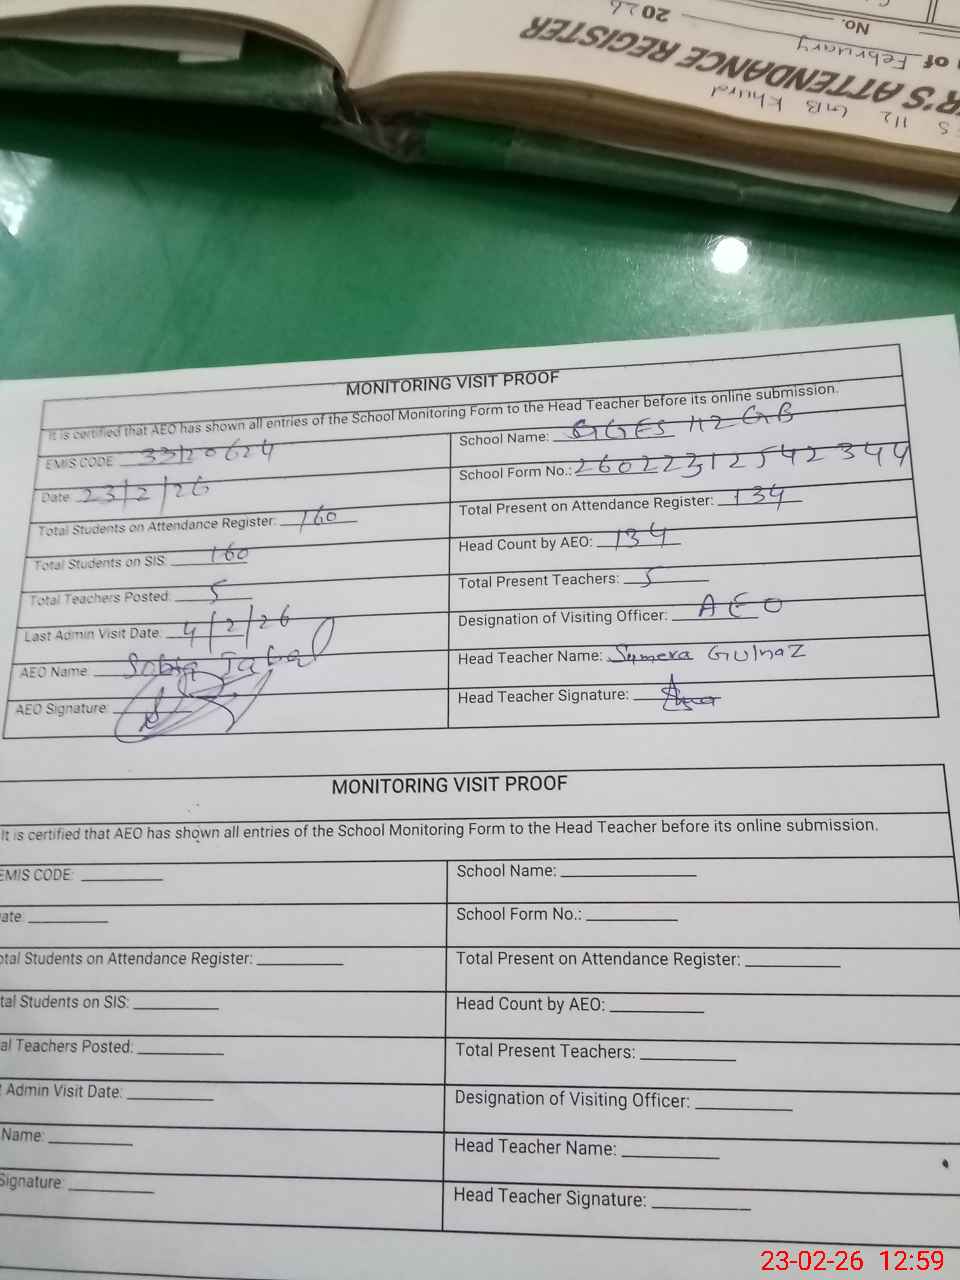 2026
No.
of February
R'S ATTENDANCE REGISTER
S 112 GB Khurd
MONITORING VISIT PROOF
It is certified that AEO has shown all entries of the School Monitoring Form to the Head Teacher before its online submission.
EMIS CODE 33120624
School Name: GGES 112 GB
Date 23/2/26
School Form No.: 26022312542344
Total Students on Attendance Register: 160
Total Present on Attendance Register: 134
Total Students on SIS: 160
Head Count by AEO: 134
Total Teachers Posted: 5
Total Present Teachers: 5
Last Admin Visit Date: 4/2/26
Designation of Visiting Officer: AEO
AEO Name: Sobia Iqbal
Head Teacher Name: Sumera Gulnaz
AEO Signature:
Head Teacher Signature:
MONITORING VISIT PROOF
It is certified that AEO has shown all entries of the School Monitoring Form to the Head Teacher before its online submission.
EMIS CODE:
School Name:
ate:
School Form No.:
otal Students on Attendance Register:
Total Present on Attendance Register:
tal Students on SIS:
Head Count by AEO:
al Teachers Posted:
Total Present Teachers:
t Admin Visit Date:
Designation of Visiting Officer:
Name:
Head Teacher Name:
Signature:
Head Teacher Signature:
23-02-26 12:59